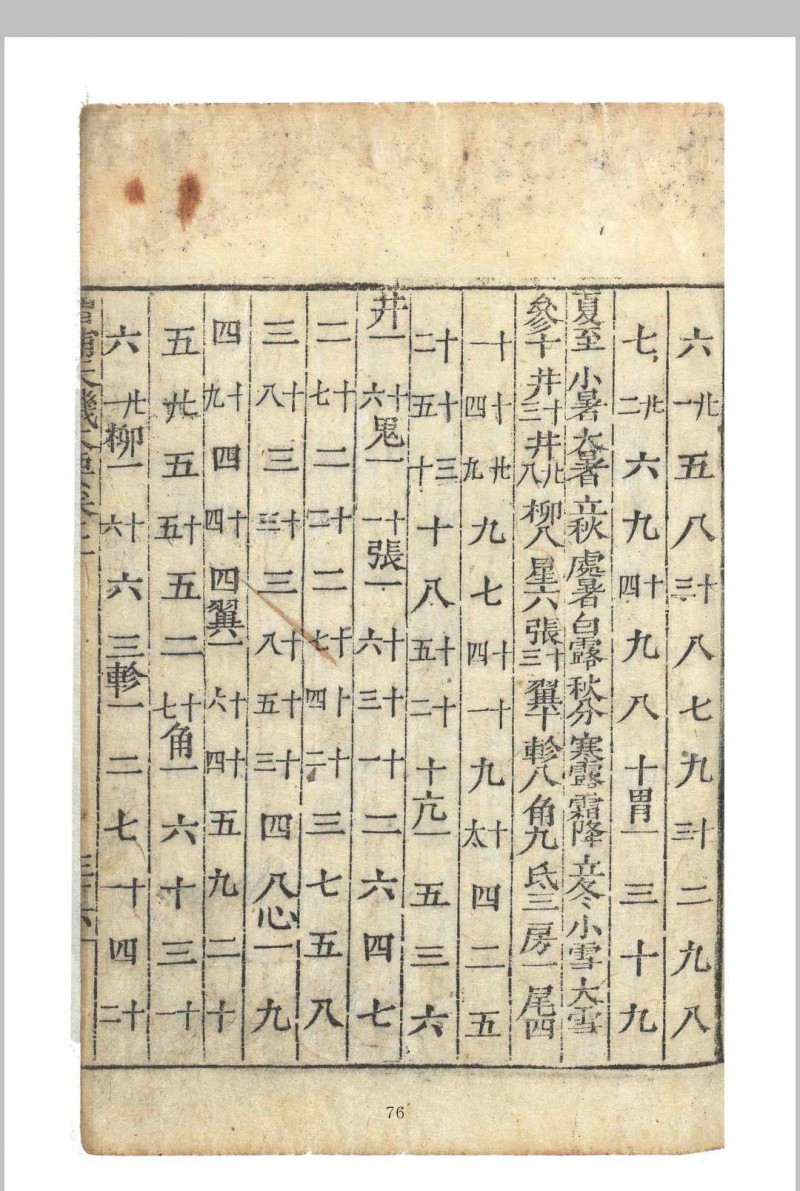 六廿一五八十三八七九十三二九八
七廿二六九十四九八十胃一三十九
夏至小暑大暑立秋處暑白露秋分寒露霜降立冬小雪大雪
參十井十三井廿八柳八星六張十三翼十軫八角九氐三房一尾四
十一十四廿九九七十四十一九十六四二五
十二十五三十十八十五十二十亢一五三六
井一十六鬼一十一張一十六十三十一二六四七
二十七二十二二十七十四十二三七五八
三十八三十三三十八十五十三四八心一九
四十九四十四四翼一十六十四五九二十
五廿五十五五二十七角一六十三十一
六廿一柳一十六六三軫一二七十一四十二
補天機大要卷
76